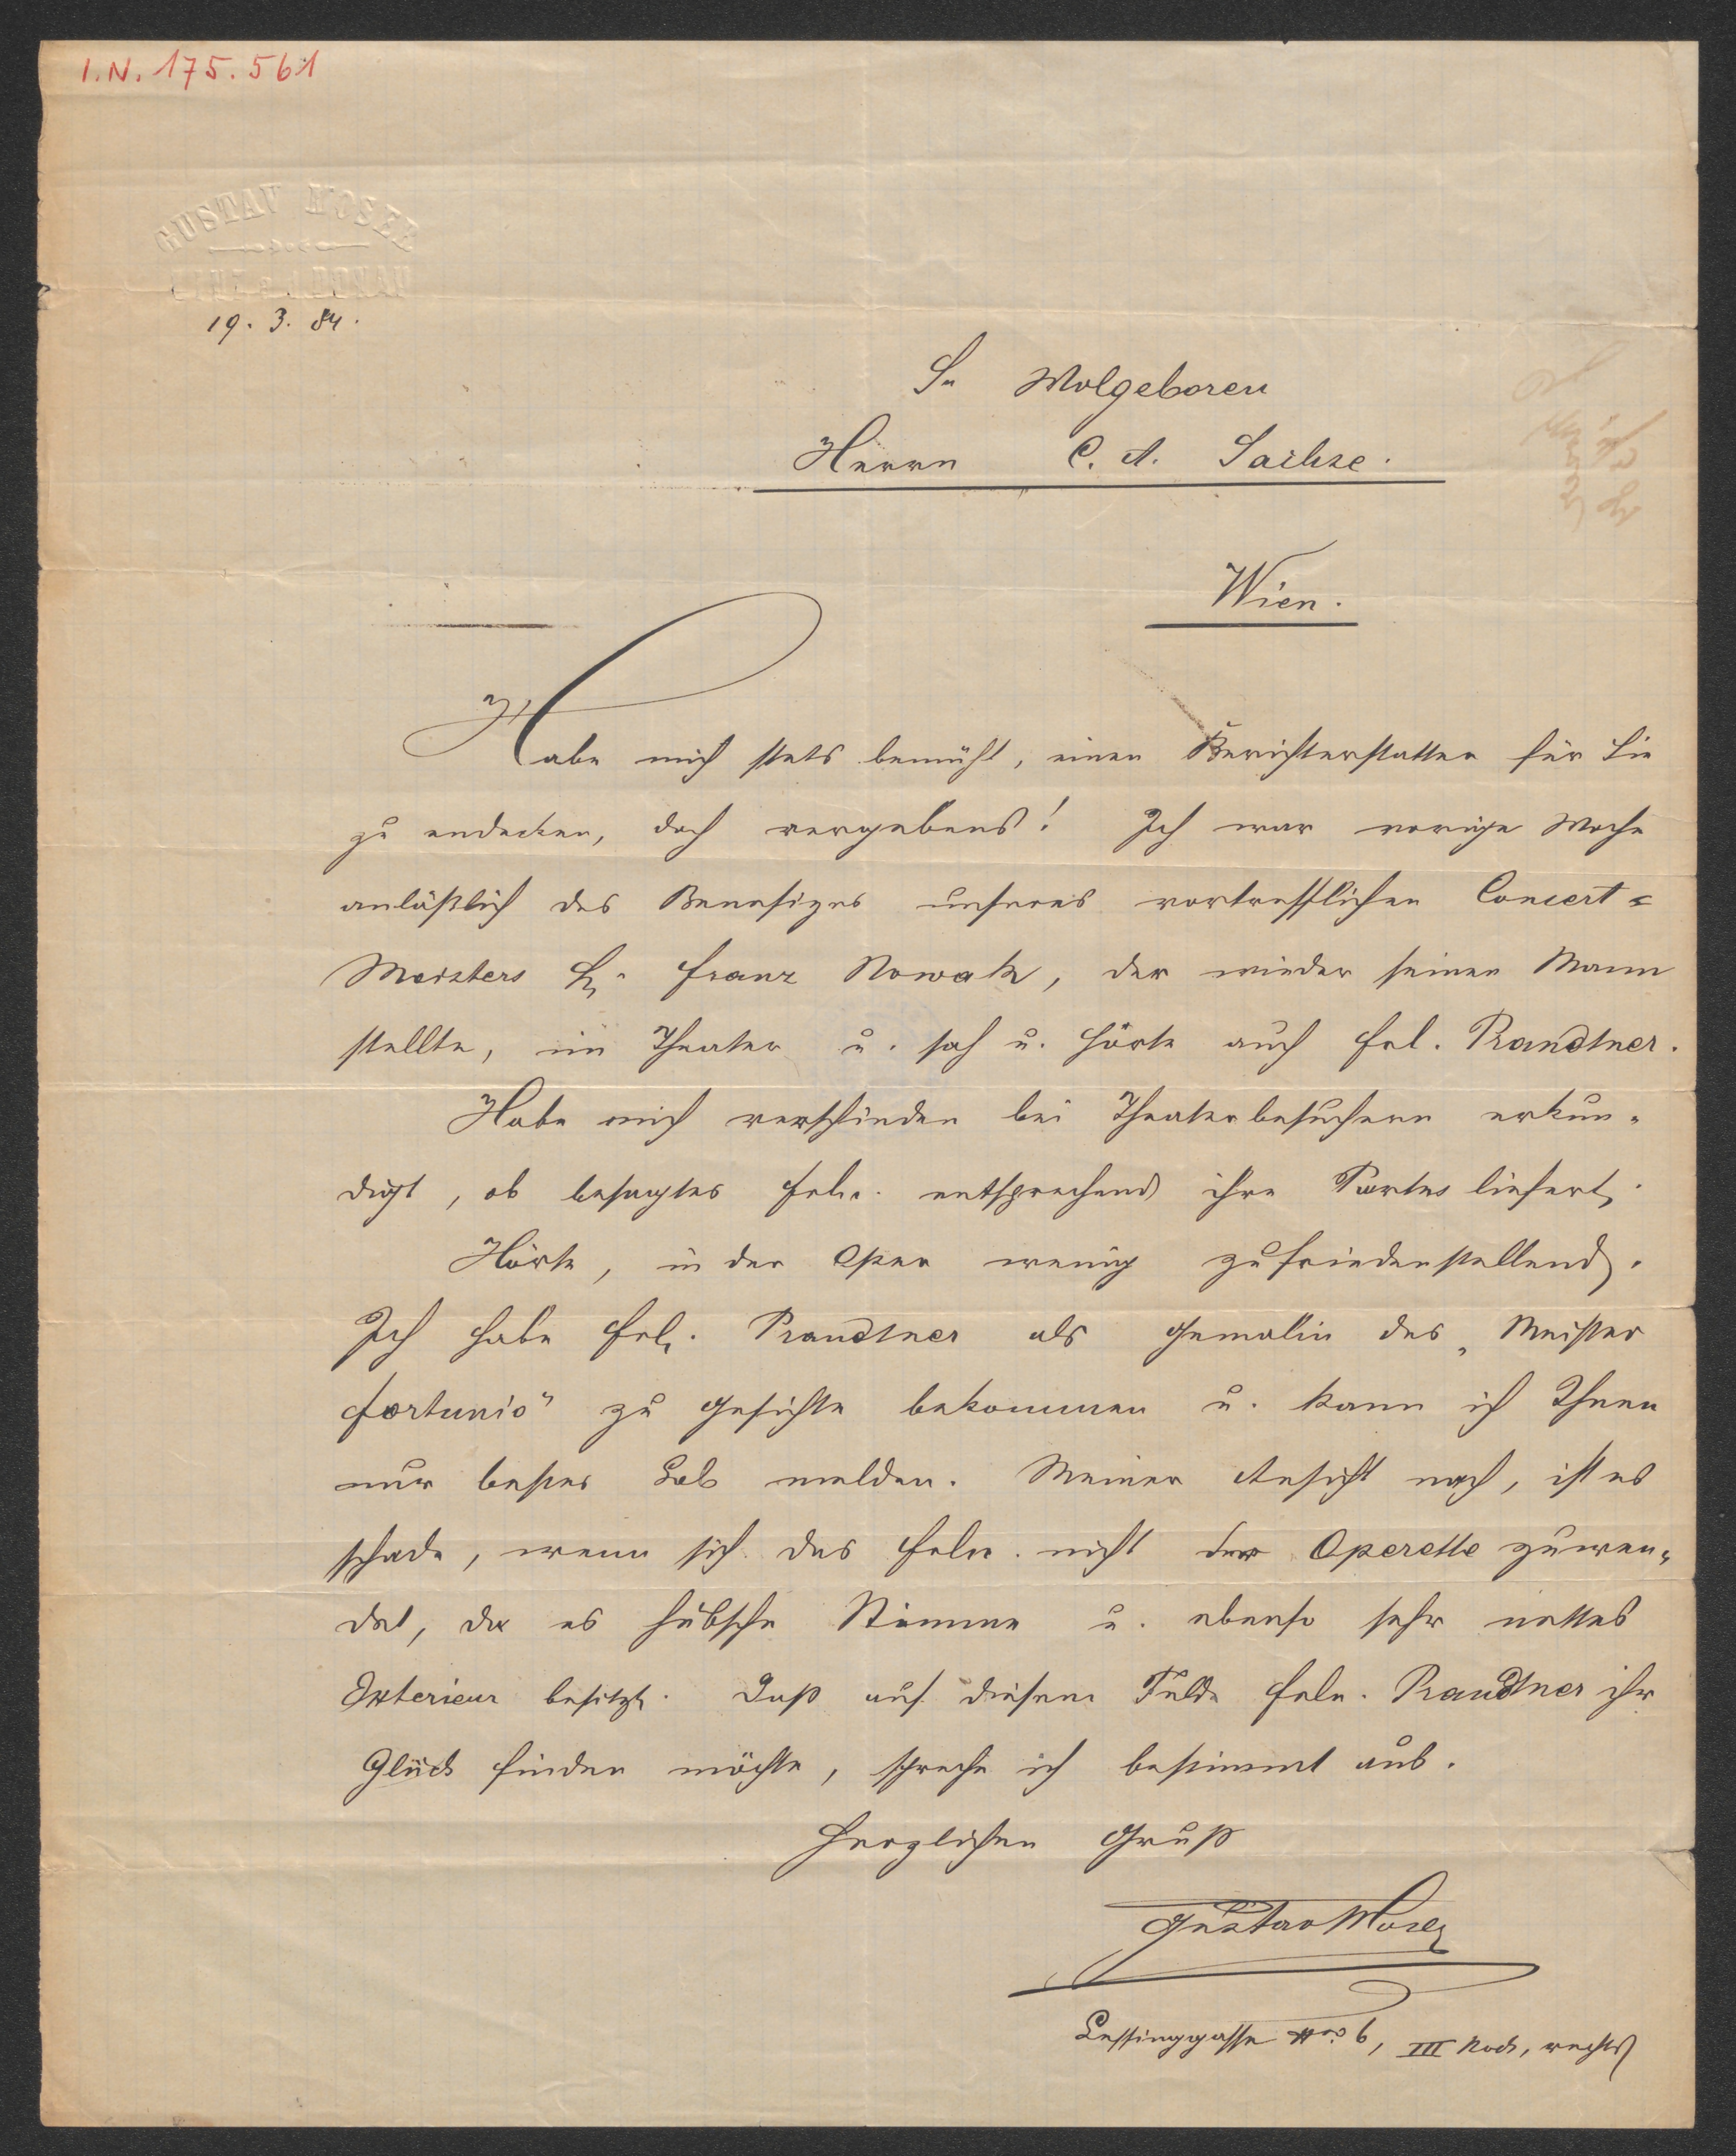 I.N. 175.561
GUSTAV MOSER
LINZ a. DONAU
19. 3. 84.
Sr Wolgeboren
Herrn C. A. Sachse.
Wien.
Habe mich stets bemüht, einen Berichterstatter für Sie
zu endecken, doch vergebens! Ich war vorige Woche
anläßlich des Benefizes unseres vortrefflichen Concert=
Meisters H. Franz Nowak, der wieder seinen Mann
stellte, im Theater u. sah u. hörte auch Frl. Prandtner.
Habe mich verschieden bei Theaterbesuchern erkun=
digt, ob besagtes Frln. entsprechend ihre Partes liefert.
Hörte, in der Oper wenig zufriedenstellend.
Ich habe Frl. Prandtner als Gemalin des „Meister
Fortunio" zu Gesichte bekommen u. kann ich Ihnen
nur bestes Lob melden. Meiner Ansicht nach, ist es
schade, wenn sich das Frln. nicht der Operette zuwen=
det, da es hübsche Stimme u. ebenso sehr nettes
Exterieur besitzt. Daß auf diesem Felde Frln. Prandtner ihr
Glück finden möchte, spreche ich bestimmt aus.
Herzlichen Gruß
Gustav Moser
Lessinggasse Nro. 6, III Stock, rechts